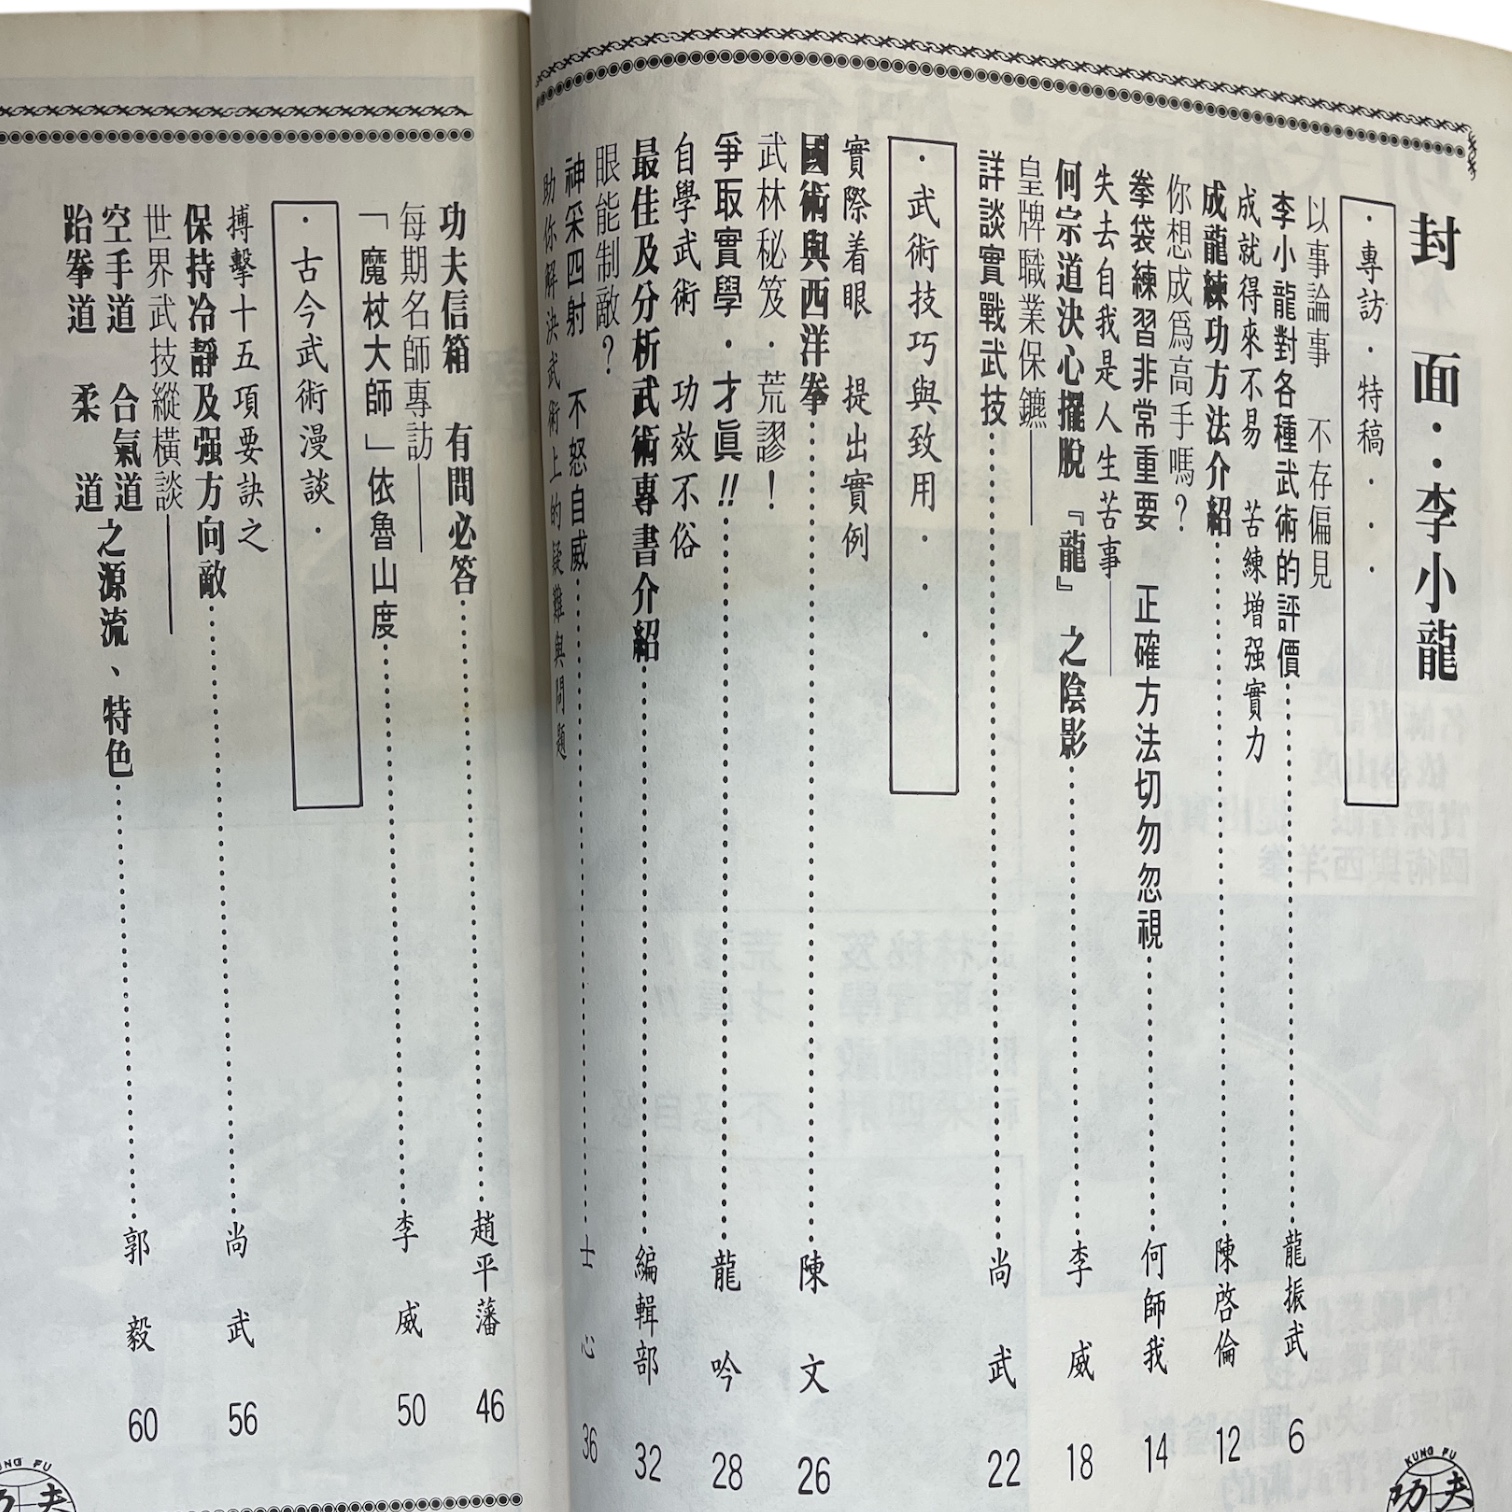 封面：李小龍
·專訪·特稿···
以事論事　不存偏見
李小龍對各種武術的評價……龍振武　6
成就得來不易　苦練增强實力
成龍練功方法介紹……陳啓倫　12
你想成爲高手嗎？
拳袋練習非常重要　正確方法切勿忽視……何師我　14
失去自我是人生苦事——
何宗道決心擺脫『龍』之陰影……李威　18
皇牌職業保鑣——
詳談實戰武技……尚武　22
·武術技巧與致用···
實際着眼　提出實例
國術與西洋拳……陳文　26
武林秘笈·荒謬！
爭取實學·才眞!!……龍吟　28
自學武術　功效不俗
最佳及分析武術專書介紹……編輯部　32
眼能制敵？
神采四射　不怒自威……士心　36
助你解決武術上的疑難與問題
功夫信箱　有問必答……趙平藩　46
每期名師專訪——
「魔杖大師」依魯山度……李威　50
·古今武術漫談·
搏擊十五項要訣之
保持冷靜及强方向敵……尚武　56
世界武技縱橫談——
空手道　合氣道
跆拳道　柔道
之源流、特色……郭毅　60
KUNG FU
功夫
UNG FU
功夫